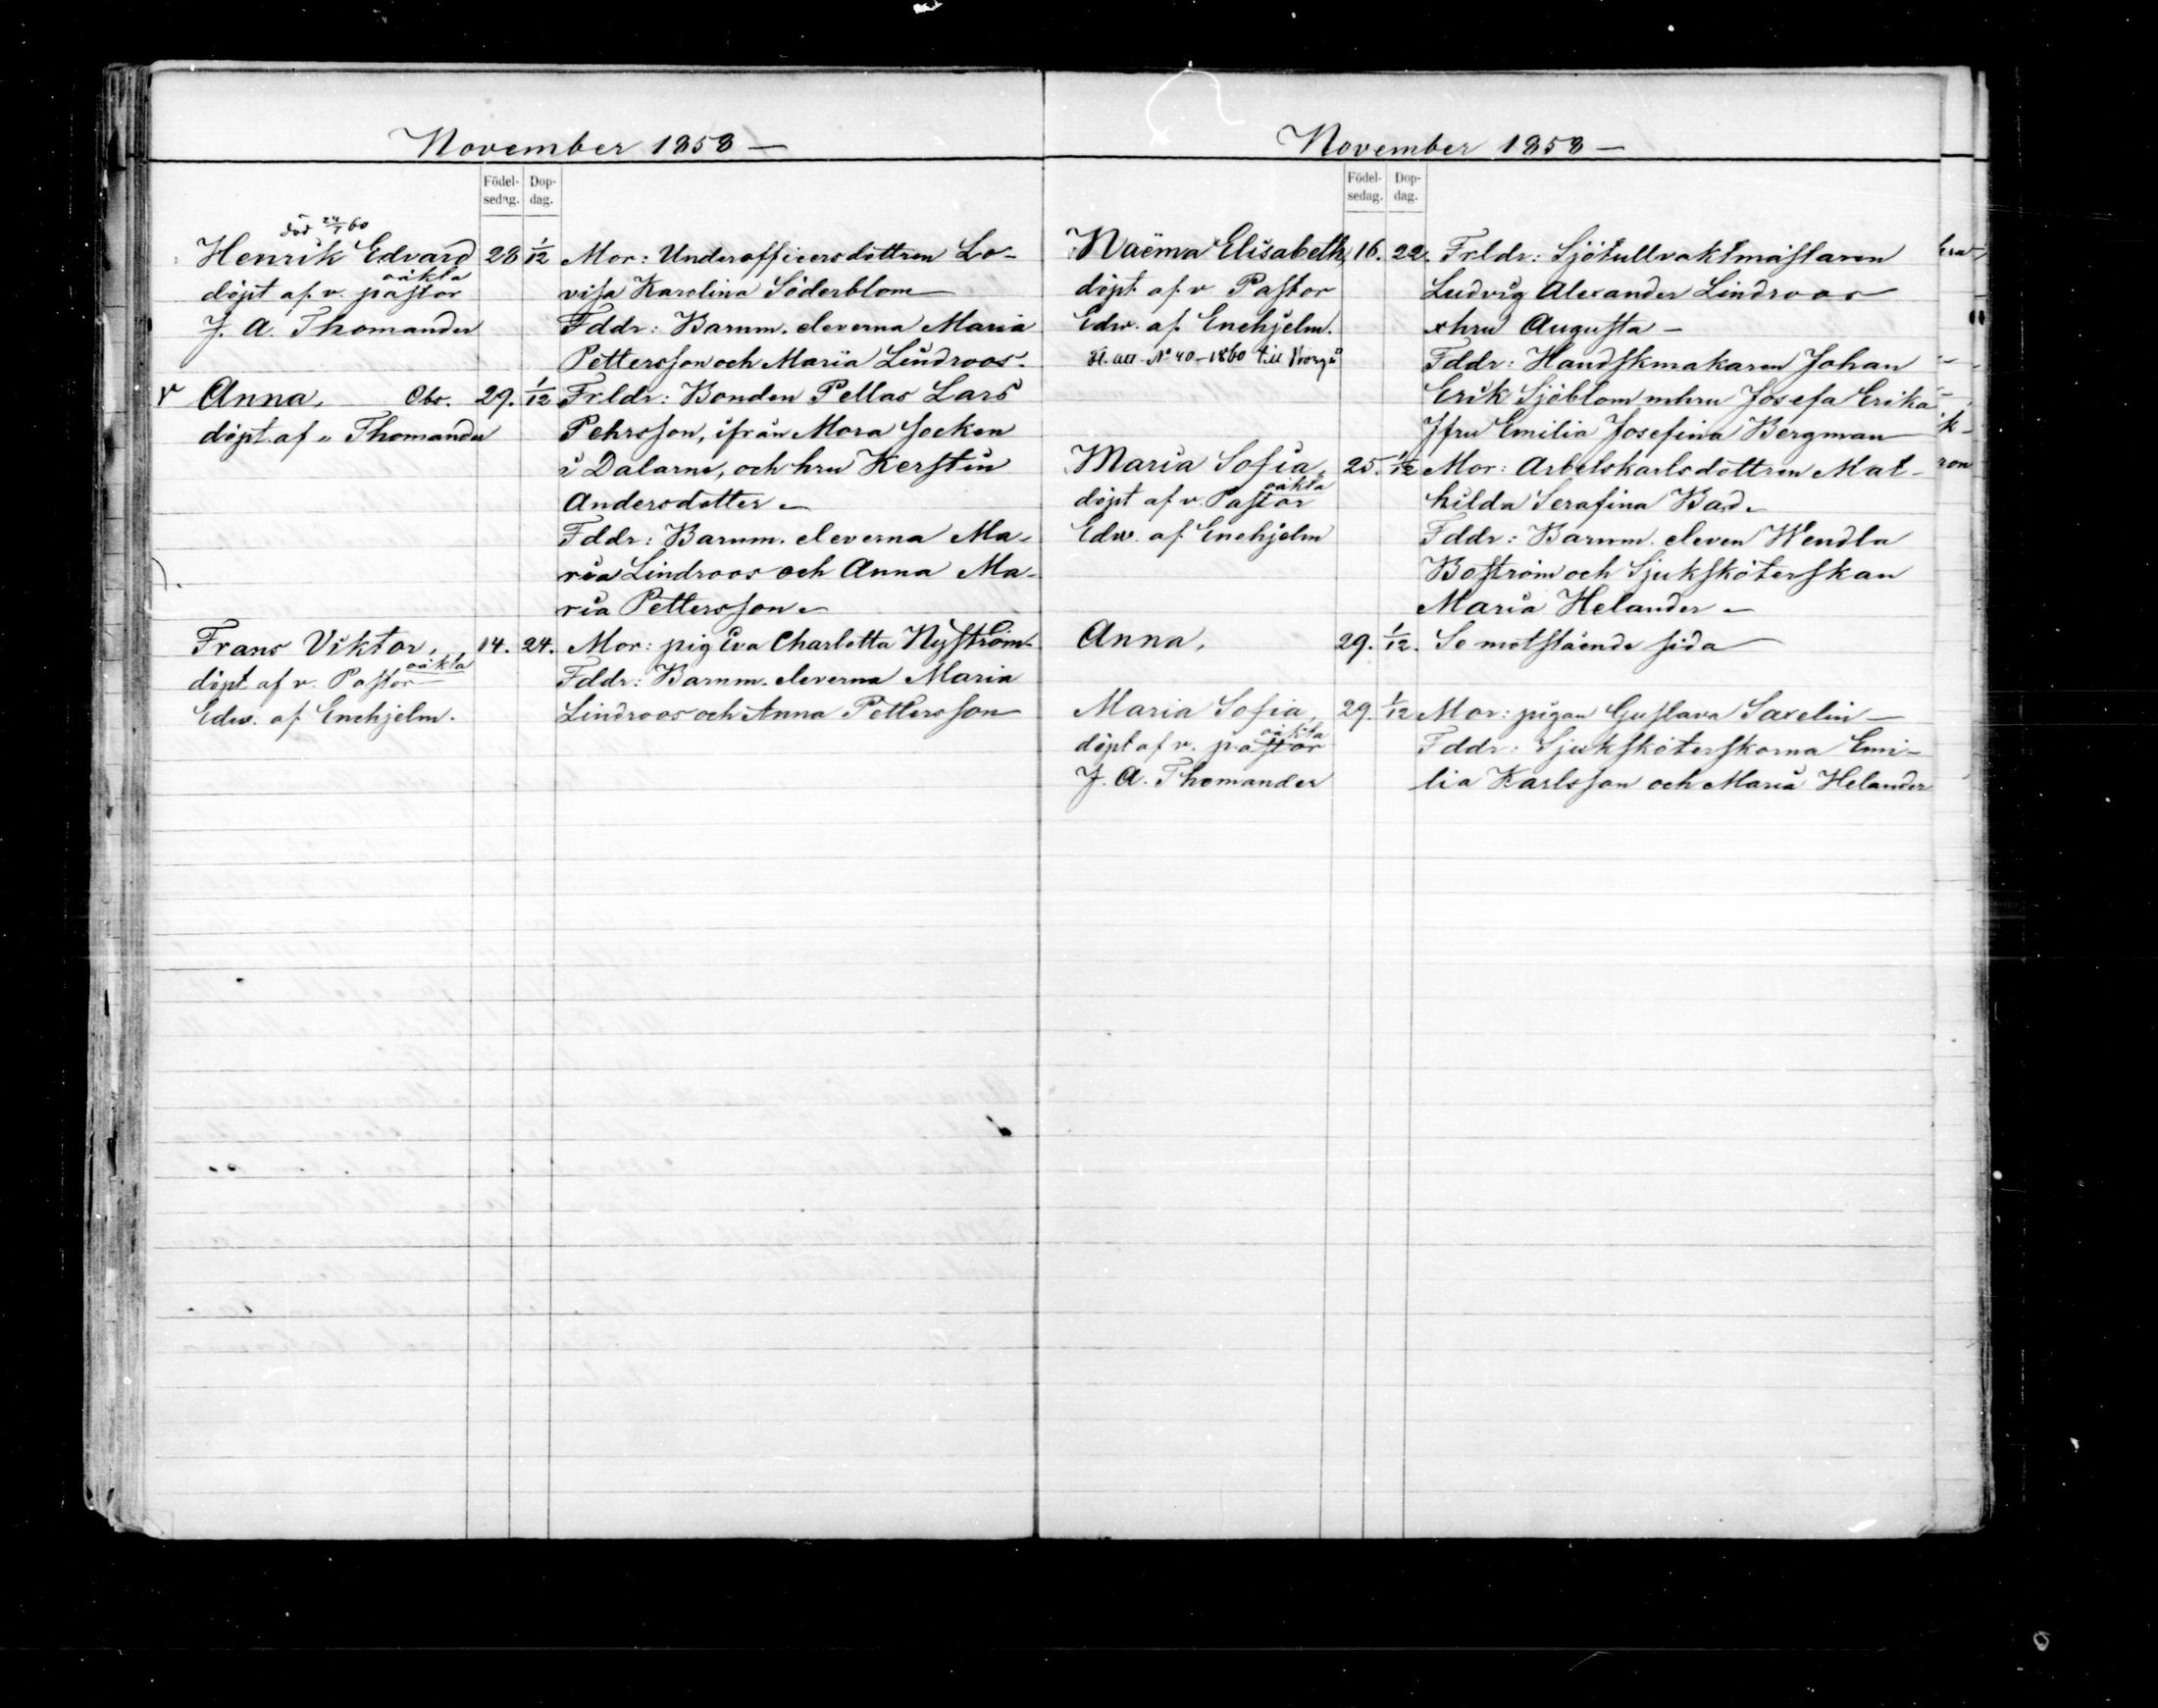 November 1858 —
Födel-
sedag.
Dop-
dag.
död 24/1 60
Henrik Edvard 28 1/12 Mor: Underofficersdottren Lo-
oäkta
döpt af v. pastor visa Karolina Söderblom —
J. A. Thomander Fddr: Barnm. eleverna Maria
Pettersson och Maria Lindroos.
v Anna, Obs. 29. 1/12 Frldr: Bonden Pellas Lars
döpt af „ Thomander Pehrsson, ifrån Mora socken
i Dalarne, och hru Kerstin
Andersdotter —
Fddr: Barnm. eleverna Ma-
ria Lindroos och Anna Ma-
ria Pettersson —
Frans Viktor, 14. 24. Mor: pig Eva Charlotta Nyström
oäkta
döpt af v. Pastor Fddr: Barnm. eleverna Maria
Edw. af Enehjelm. Lindroos och Anna Pettersson
November 1858 —
Födel-
sedag.
Dop-
dag.
Naëma Elisabeth, 16. 22. Frldr: Sjötullvaktmästaren
döpt af v Pastor Ludvig Alexander Lindroos
Edw. af Enehjelm. o hru Augusta —
Fl. att. No 40 – 1860 till Fddr: Handskmakaren Johan
Erik Sjöblom m hru Josefa Erika
Jfru Emilia Josefina Bergman
Maria Sofia, 25. 1/12 Mor: Arbetskarlsdottren Mat-
oäkta
döpt af v. Pastor hilda Serafina Bard —
Edw. af Enehjelm Fddr: Barnm. eleven Wendla
Boström och Sjuksköterskan
Maria Helander —
Anna, 29. 1/12. Se motstående sida —
Maria Sofia, 29. 1/12 Mor: pigan Gustava Saxelin —
oäkta
döpt af v. pastor Fddr: Sjuksköterskorna Emi-
J. A. Thomander lia Karlsson och Maria Helander